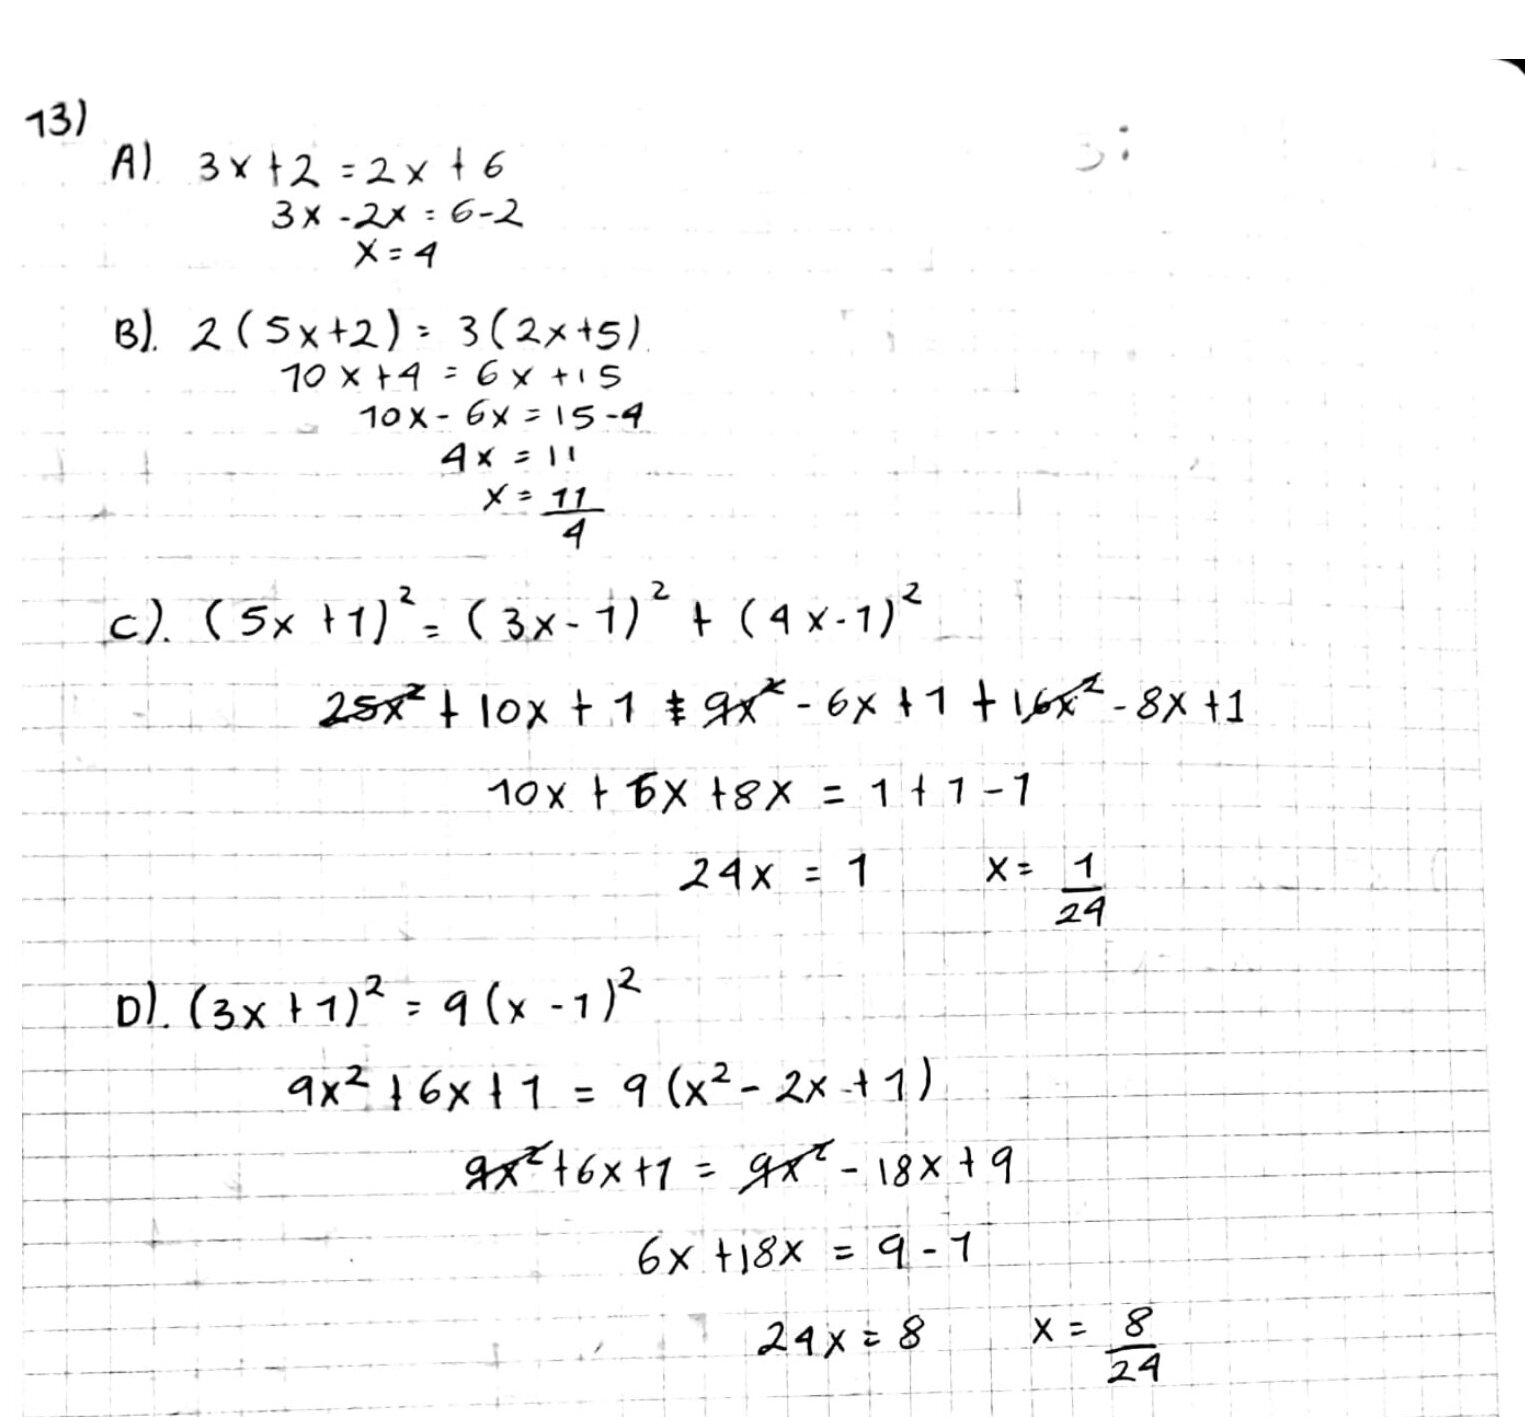 13)
A) 3x+2 = 2x + 6
3x - 2x = 6-2
x = 4
B). 2(5x+2) = 3(2x+5).
10x+4 = 6x+15
10x - 6x = 15-4
4x = 11
x = 11/4
C). (5x+1)² = (3x-1)² + (4x-1)²
25x² + 10x + 1 = 9x² - 6x + 1 + 16x² - 8x + 1
10x + 6x + 8x = 1 + 1 - 1
24x = 1 x = 1/24
D). (3x+1)² = 9(x-1)²
9x² + 6x + 1 = 9(x² - 2x + 1)
9x² + 6x + 1 = 9x² - 18x + 9
6x + 18x = 9 - 1
24x = 8 x = 8/24